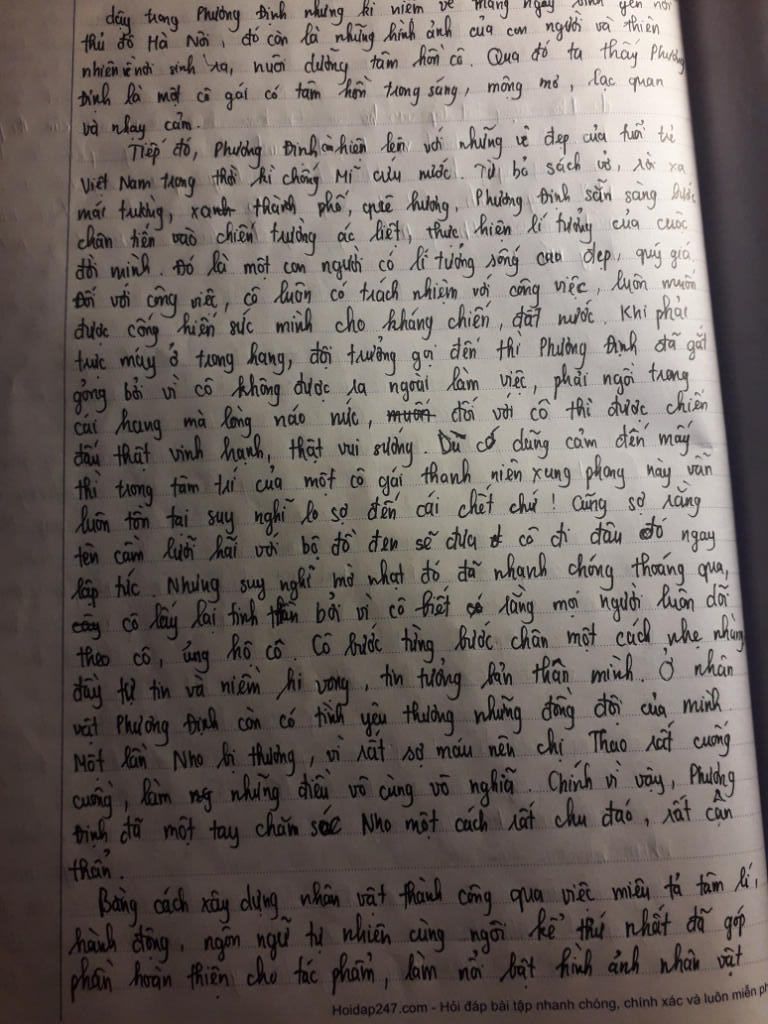 dậy trong Phương Định những kỉ niệm về tháng ngày bình yên nơi
thủ đô Hà Nội, đó còn là những hình ảnh của con người và thiên
nhiên về nơi sinh ra, nuôi dưỡng tâm hồn cô. Qua đó ta thấy Phương
Định là một cô gái có tâm hồn trong sáng, mộng mơ, lạc quan
và nhạy cảm.
Tiếp đó, Phương Định còn hiện lên với những vẻ đẹp của tuổi trẻ
Việt Nam trong thời kì chống Mĩ cứu nước. Từ bỏ sách vở, rời xa
mái trường, xanh thành phố, quê hương, Phương Định sẵn sàng bước
chân tiến vào chiến trường ác liệt, thực hiện lí tưởng của cuộc
đời mình. Đó là một con người có lí tưởng sống cao đẹp, quý giá.
Đối với công việc, cô luôn có trách nhiệm với công việc, luôn muốn
được cống hiến sức mình cho kháng chiến, đất nước. Khi phải
trực máy ở trong hang, đội trưởng gọi đến thì Phương Định đã gắt
gỏng bởi vì cô không được ra ngoài làm việc, phải ngồi trong
cái hang mà lòng náo nức, muốn đối với cô thì được chiến
đấu thật vinh hạnh, thật vui sướng. Dù có dũng cảm đến mấy
thì trong tâm trí của một cô gái thanh niên xung phong này vẫn
luôn tồn tại suy nghĩ lo sợ đến cái chết chứ! Cũng sợ rằng
tên cầm lưỡi hái với bộ đồ đen sẽ đưa cô đi đâu đó ngay
lập tức. Nhưng suy nghĩ mờ nhạt đó đã nhanh chóng thoáng qua,
cô lấy lại tinh thần bởi vì cô biết rằng mọi người luôn dõi
theo cô, ủng hộ cô. Cô bước từng bước chân một cách nhẹ nhàng
đầy tự tin và niềm hi vọng, tin tưởng bản thân mình. Ở nhân
vật Phương Định còn có tình yêu thương những đồng đội của mình.
Một lần Nho bị thương, vì rất sợ máu nên chị Thao rất cuống
cuồng, làm những điều vô cùng vô nghĩa. Chính vì vậy, Phương
Định đã một tay chăm sóc Nho một cách rất chu đáo, rất cẩn
thẩn.
Bằng cách xây dựng nhân vật thành công qua việc miêu tả tâm lí,
hành động, ngôn ngữ tự nhiên cùng ngôi kể thứ nhất đã góp
phần hoàn thiện cho tác phẩm, làm nổi bật hình ảnh nhân vật
Hoidap247.com - Hỏi đáp bài tập nhanh chóng, chính xác và luôn miễn ph